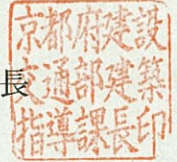 長
京都府建設
交通部建築
指導課長印